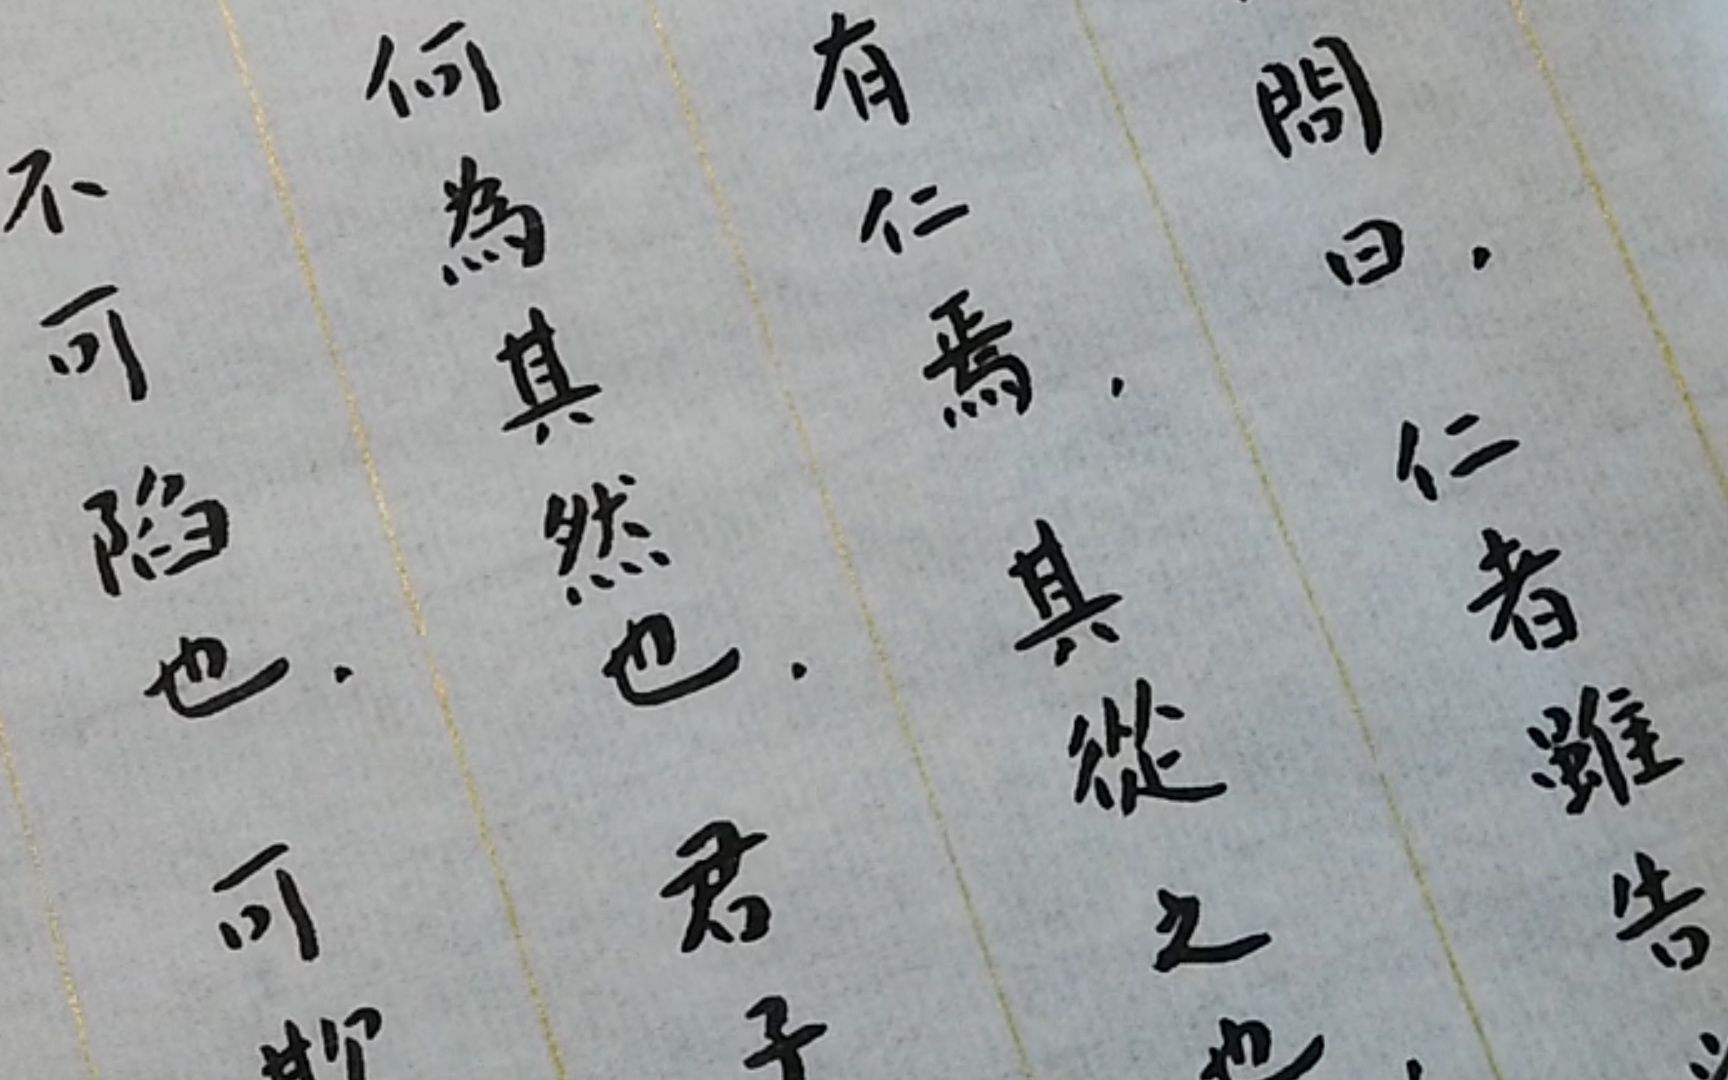 問曰．仁者雖告
有仁焉．其從之也．
何為其然也．君子
不可陷也．可